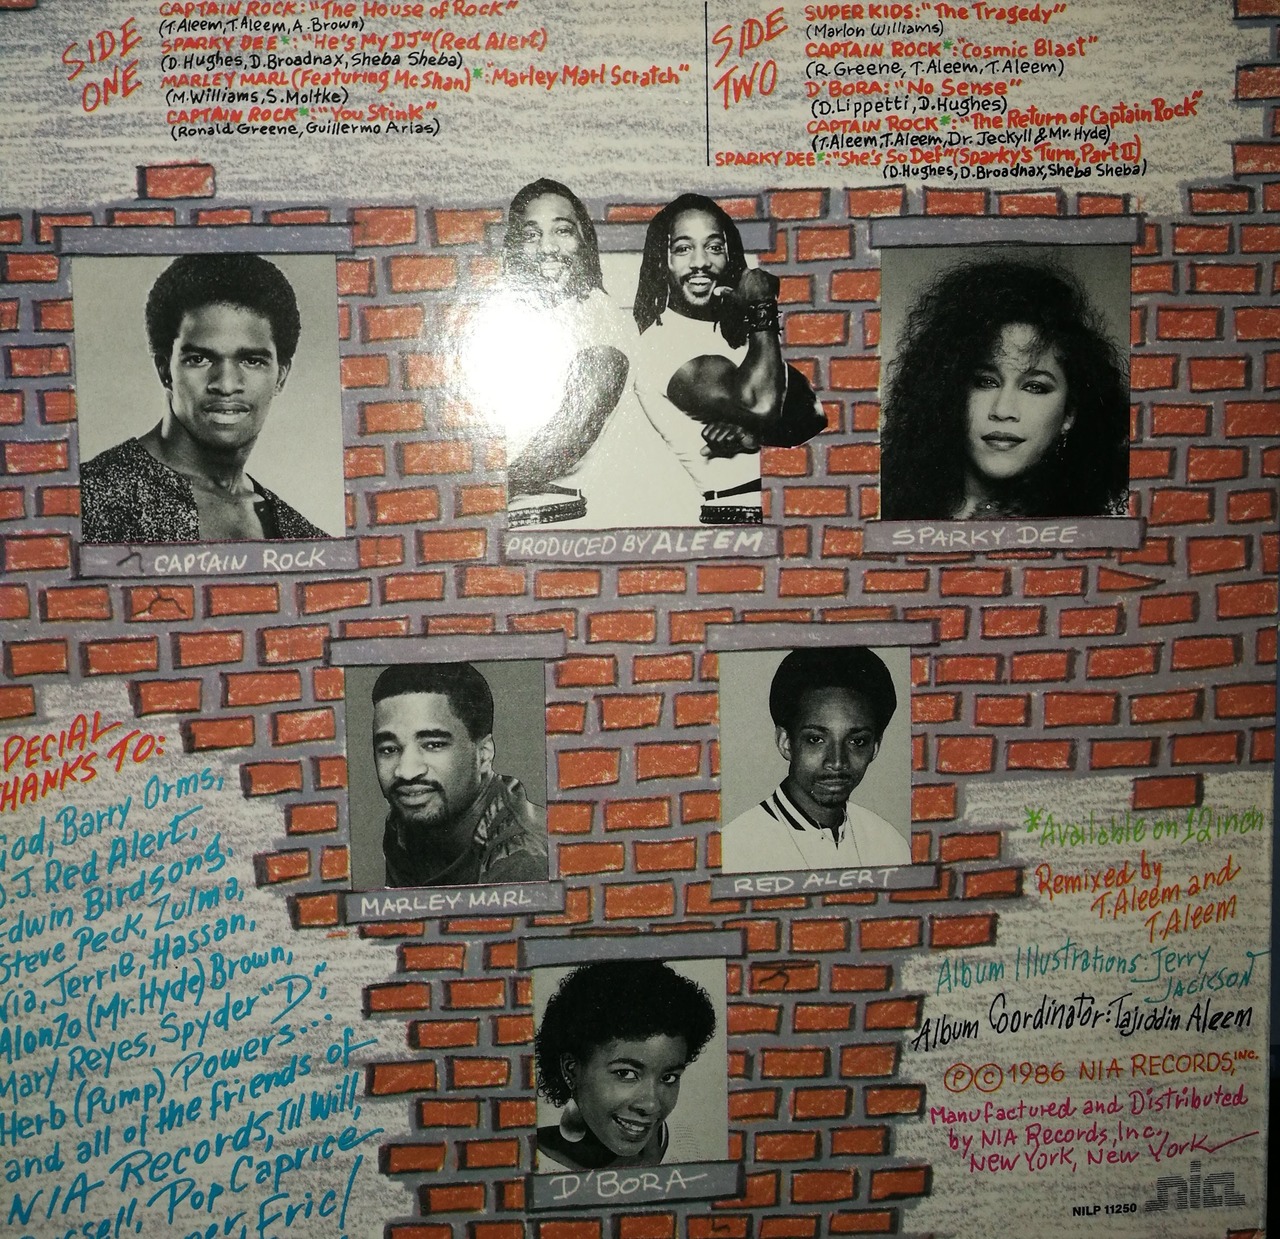 SIDE ONE
CAPTAIN ROCK: "The House of Rock"
(T.Aleem, T.Aleem, A.Brown)
SPARKY DEE*: "He's My DJ" (Red Alert)
(D.Hughes, D.Broadnax, Sheba Sheba)
MARLEY MARL (Featuring Mc Shan)*: "Marley Marl Scratch"
(M.Williams, S.Moltke)
CAPTAIN ROCK*: "You Stink"
(Ronald Greene, Guillermo Arias)
SIDE TWO
SUPER KIDS: "The Tragedy"
(Marlon Williams)
CAPTAIN ROCK*: "Cosmic Blast"
(R.Greene, T.Aleem, T.Aleem)
D'BORA: "No Sense"
(D.Lippetti, D.Hughes)
CAPTAIN ROCK*: "The Return of Captain Rock"
(T.Aleem, T.Aleem, Dr. Jeckyll & Mr. Hyde)
SPARKY DEE*: "She's So Def" (Sparky's Turn, Part II)
(D.Hughes, D.Broadnax, Sheba Sheba)
CAPTAIN ROCK
PRODUCED BY ALEEM
SPARKY DEE
MARLEY MARL
RED ALERT
D'BORA
PECIAL
HANKS TO:
God, Barry Orms,
D.J. Red Alert,
Edwin Birdsong,
Steve Peck, Zulma,
Nia, Jerrie, Hassan,
Alonzo (Mr. Hyde) Brown,
Mary Reyes, Spyder "D",
Herb (Pump) Powers...
and all of the friends of
NIA Records, Ill Will,
Pop Caprice
Eric
*Available on 12 inch
Remixed by
T.Aleem and
T.Aleem
Album Illustrations: Jerry
JACKSON
Album Coordinator: Tajiddin Aleem
Ⓟ©1986 NIA RECORDS, INC.
Manufactured and Distributed
by NIA Records, Inc.,
New York, New York
nia
NILP 11250